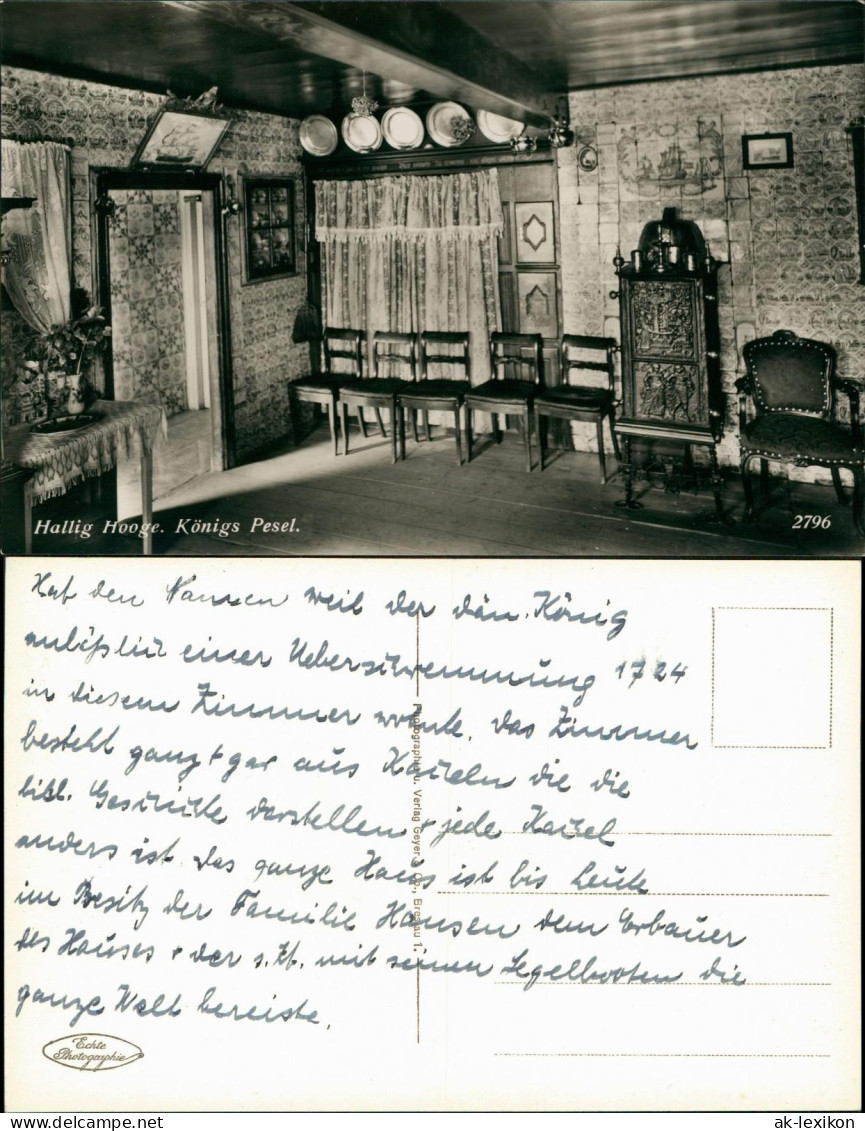 Hallig Hooge. Königs Pesel.
2796
Hat den Namen weil der dän. König
anläßlich einer Ueberschwemmung 1724
in diesem Zimmer wohnte. Das Zimmer
besteht ganz + gar aus Kacheln die die
bibl. Geschichte darstellen + jede Kachel
anders ist. Das ganze Haus ist bis heute
im Besitz der Familie Hansen dem Erbauer
des Hauses + der s. Zt. mit seinen Segelbooten die
ganze Welt bereiste.
Photographie u. Verlag Geyer & Co., Breslau 1.
Echte
Photographie
ak-lexikon